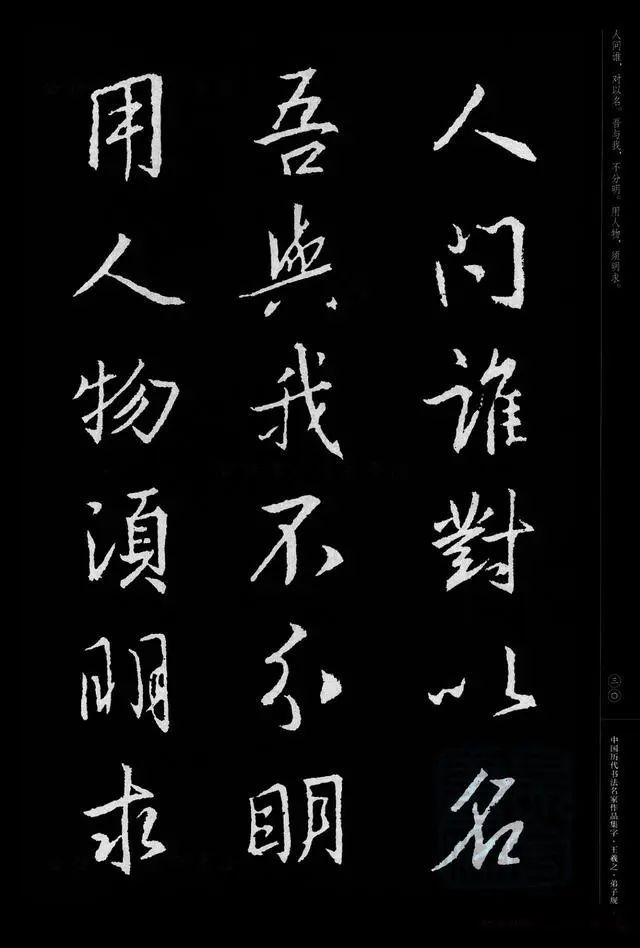 人問誰對以名
吾與我不分明
用人物須明求
人问谁，对以名。吾与我，不分明。用人物，须明求。
三〇
中国历代书法名家作品集字·王羲之·弟子规·